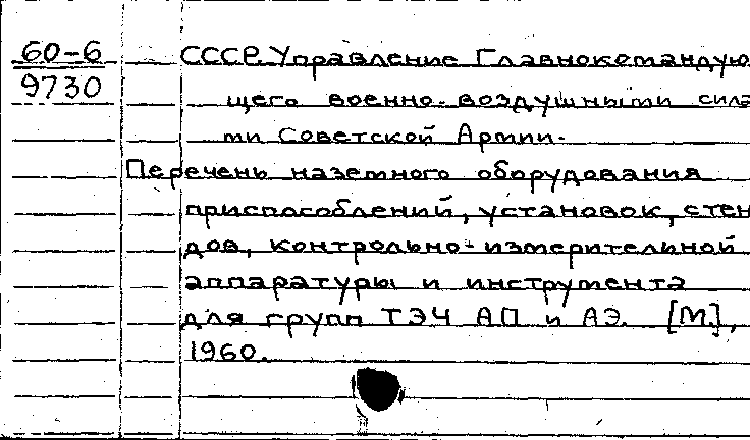 60-6
9730
СССР. Управление Главнокомандую
щего военно-воздушными сила
ми Советской Армии.
Перечень наземного оборудования
приспособлений, установок, стен
дов, контрольно-измерительной
аппаратуры и инструмента
для групп ТЭЧ АП и АЭ. [М.],
1960.